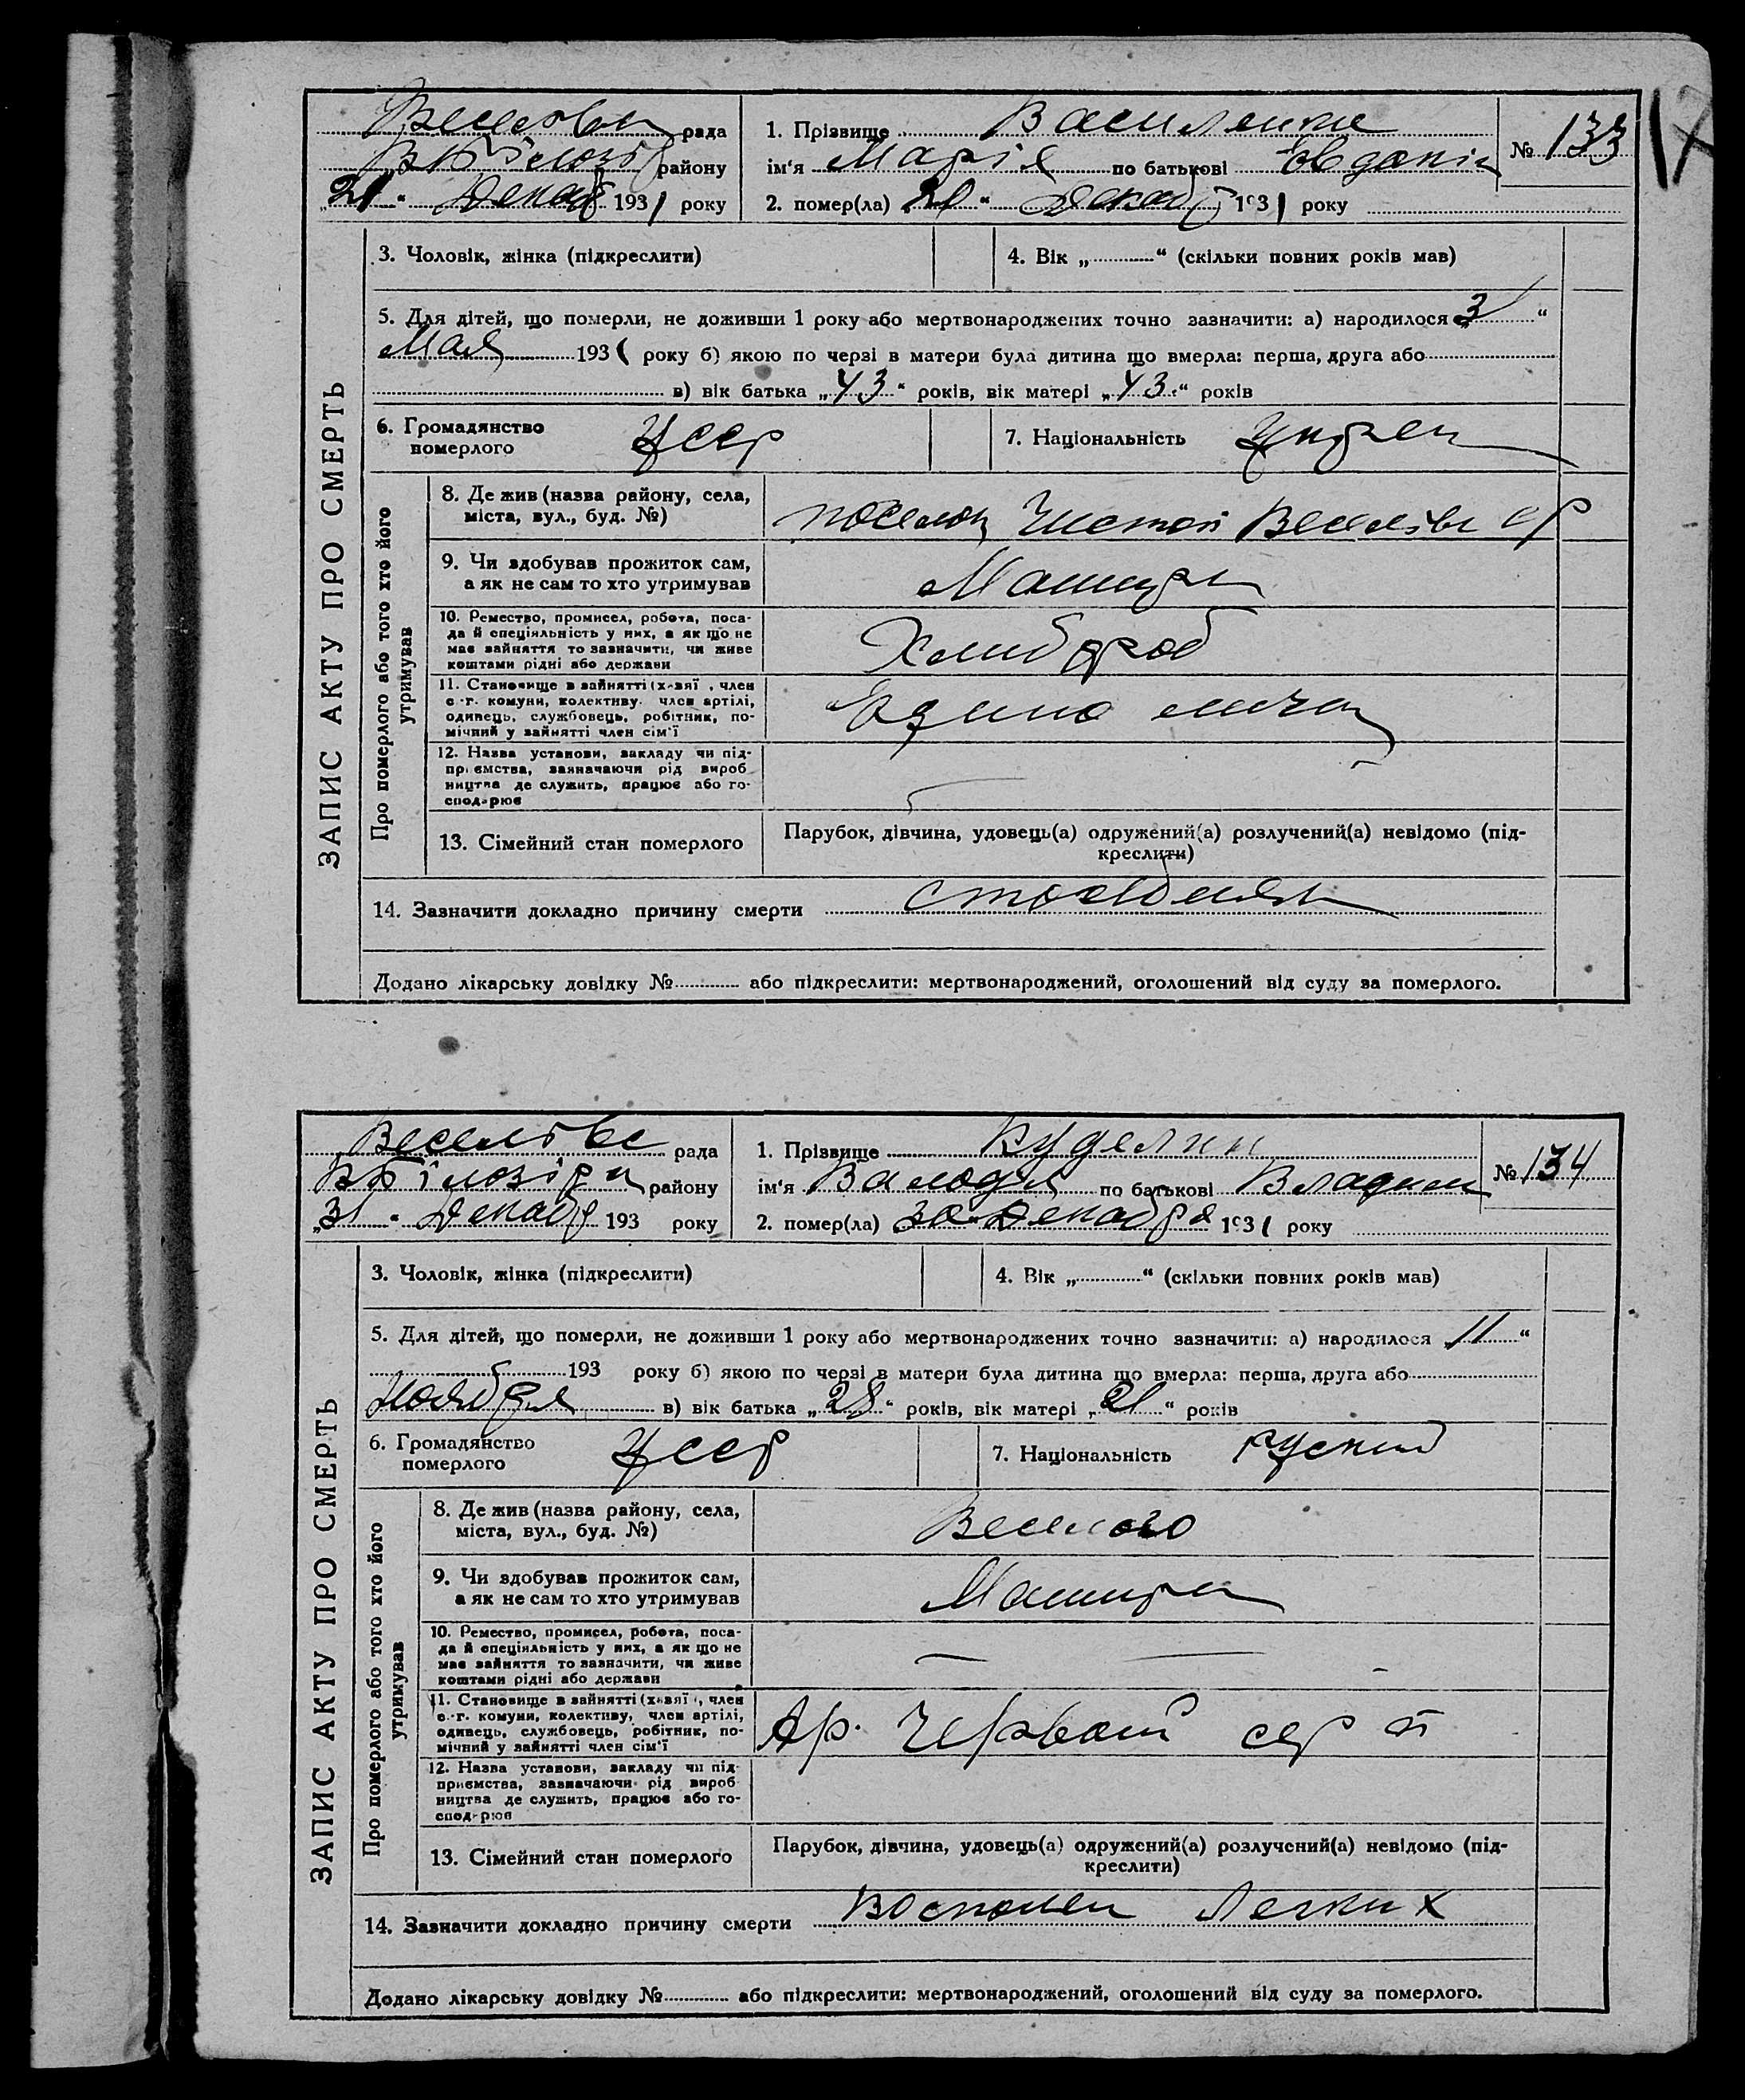 17
рада
району
„21“ Декаб 1931 року
1. Прізвище Василенко
ім‘я Марія по батькові Евдоким
2. помер(ла) „20“ Декаб 1931 року
№ 133
ЗАПИС АКТУ ПРО СМЕРТЬ
3. Чоловік, жінка (підкреслити)
4. Вік „ “ (скільки повних років мав)
5. Для дітей, що померли, не доживши 1 року або мертвонароджених точно зазначити: а) народилося „3“
Мая 1931 року б) якою по черзі в матери була дитина що вмерла: перша, друга або
в) вік батька „43“ років, вік матері „43“ років
6. Громадянство
померлого
Усср
7. Національність
Украен
Про померлого або того хто його
утримував
8. Де жив (назва району, села,
міста, вул., буд. №)
поселок Чистой Веселівс ср
9. Чи здобував прожиток сам,
а як не сам то хто утримував
10. Ремество, промисел, робота, поса-
да й спеціяльність у них, а як що не
має зайняття то зазначити, чи живе
коштами рідні або держави
Хлибороб
11. Становище в зайнятті (хазяї, член
с.-г. комуни, колективу, член артілі,
одинець, службовець, робітник, по-
мічний у зайнятті член сім‘ї
Едино лични
12. Назва установи, закладу чи під-
приємства, зазначаючи рід вироб
ництва де служить, працює або го-
сподарює
—
13. Сімейний стан померлого
Парубок, дівчина, удовець(а) одружений(а) розлучений(а) невідомо (під-
креслити)
14. Зазначити докладно причину смерти
Додано лікарську довідку № або підкреслити: мертвонароджений, оголошений від суду за померлого.
Веселівс рада
району
„31“ Декабр 193 року
1. Прізвище Куделин
ім‘я Валодя по батькові Владим
2. помер(ла) „30“ Декабря 1931 року
№ 134
ЗАПИС АКТУ ПРО СМЕРТЬ
3. Чоловік, жінка (підкреслити)
4. Вік „ “ (скільки повних років мав)
5. Для дітей, що померли, не доживши 1 року або мертвонароджених точно зазначити: а) народилося „11“
193 року б) якою по черзі в матери була дитина що вмерла: перша, друга або
Ноября в) вік батька „28“ років, вік матері „21“ років
6. Громадянство
померлого
Усср
7. Національність
руский
Про померлого або того хто його
утримував
8. Де жив (назва району, села,
міста, вул., буд. №)
Веселого
9. Чи здобував прожиток сам,
а як не сам то хто утримував
10. Ремество, промисел, робота, поса-
да й спеціяльність у них, а як що не
має зайняття то зазначити, чи живе
коштами рідні або держави
— — -
11. Становище в зайнятті (хазяї, член
с.-г. комуни, колективу, член артілі,
одинець, службовець, робітник, по-
мічний у зайнятті член сім‘ї
Ар. Червоний серп
12. Назва установи, закладу чи під-
приємства, зазначаючи рід вироб
ництва де служить, працює або го-
сподарює
13. Сімейний стан померлого
Парубок, дівчина, удовець(а) одружений(а) розлучений(а) невідомо (під-
креслити)
14. Зазначити докладно причину смерти Воспален Легких
Додано лікарську довідку № або підкреслити: мертвонароджений, оголошений від суду за померлого.